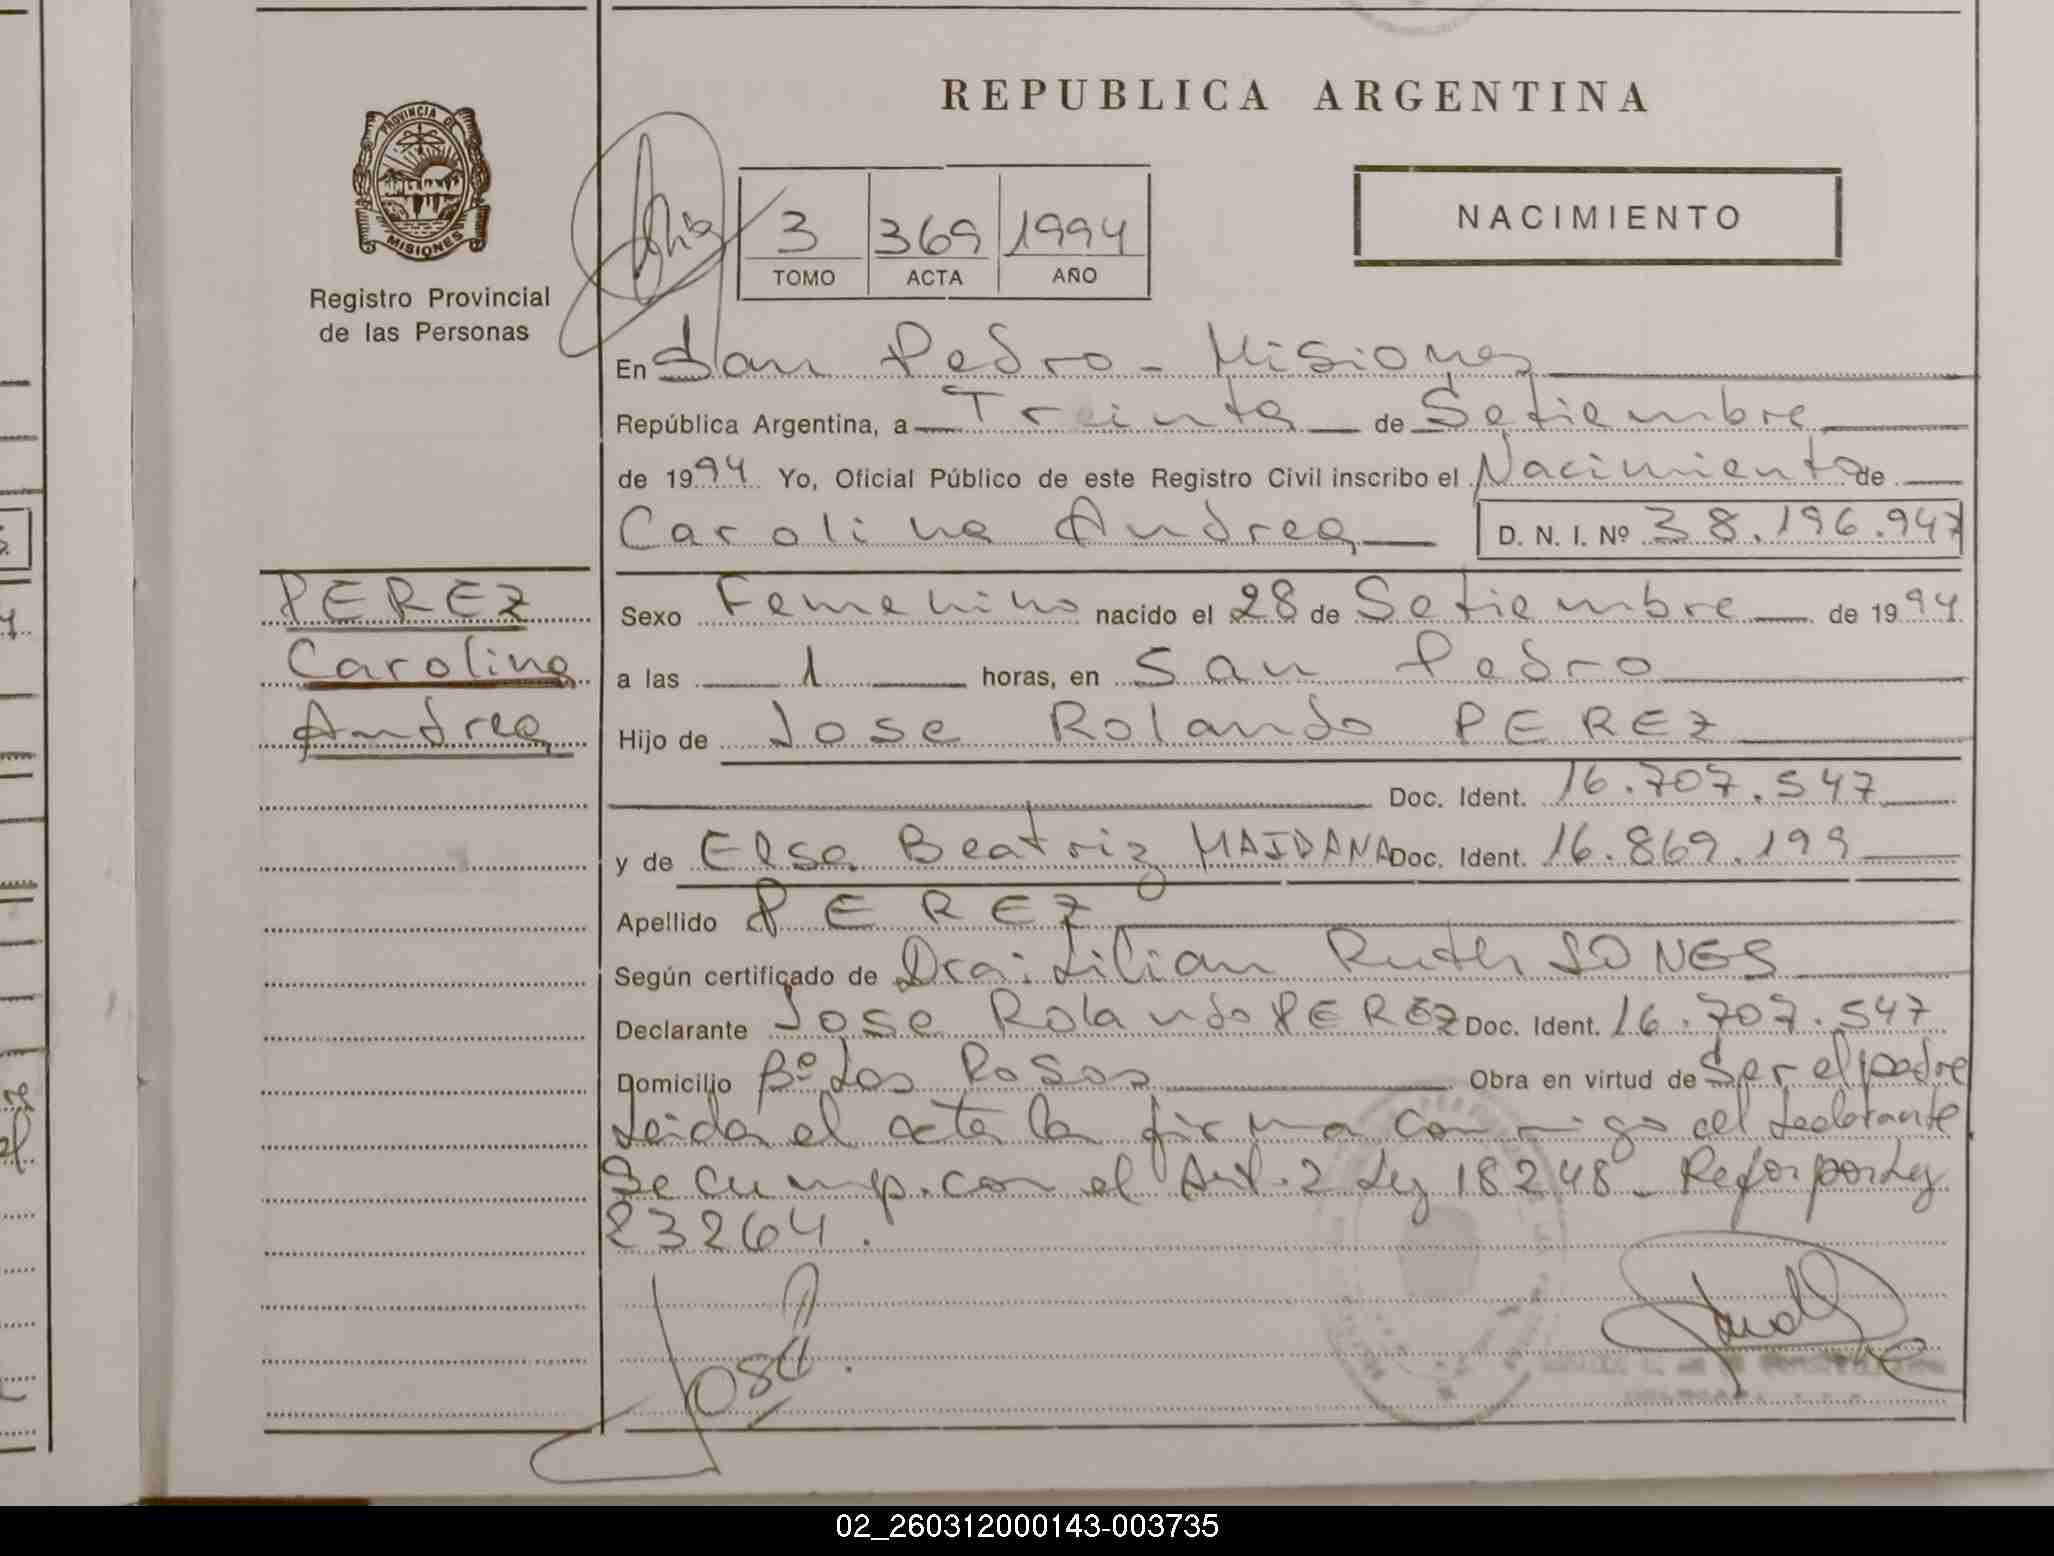 REPUBLICA ARGENTINA
PROVINCIA DE
MISIONES
Registro Provincial
de las Personas
3 369 1994
TOMO ACTA AÑO
NACIMIENTO
En San Pedro - Misiones
República Argentina, a Treinta de Setiembre
de 1994 Yo, Oficial Público de este Registro Civil inscribo el Nacimiento de
Carolina Andrea D. N. I. Nº 38.196.947
PEREZ
Carolina
Andrea
Sexo Femenino nacido el 28 de Setiembre de 1994
a las 1 horas, en San Pedro
Hijo de Jose Rolando PEREZ
Doc. Ident. 16.707.547
y de Elsa Beatriz MAIDANA Doc. Ident. 16.869.199
Apellido PEREZ
Según certificado de Dra: Lilian Ruth JONES
Declarante Jose Rolando PEREZ Doc. Ident. 16.707.547
Domicilio Bº Las Rosas Obra en virtud de Ser el padre
Leida el acta la firma conmigo el declarante
Se cump. con el Art. 2 Ley 18248 - Refor por Ley
23264.
José.
02_260312000143-003735